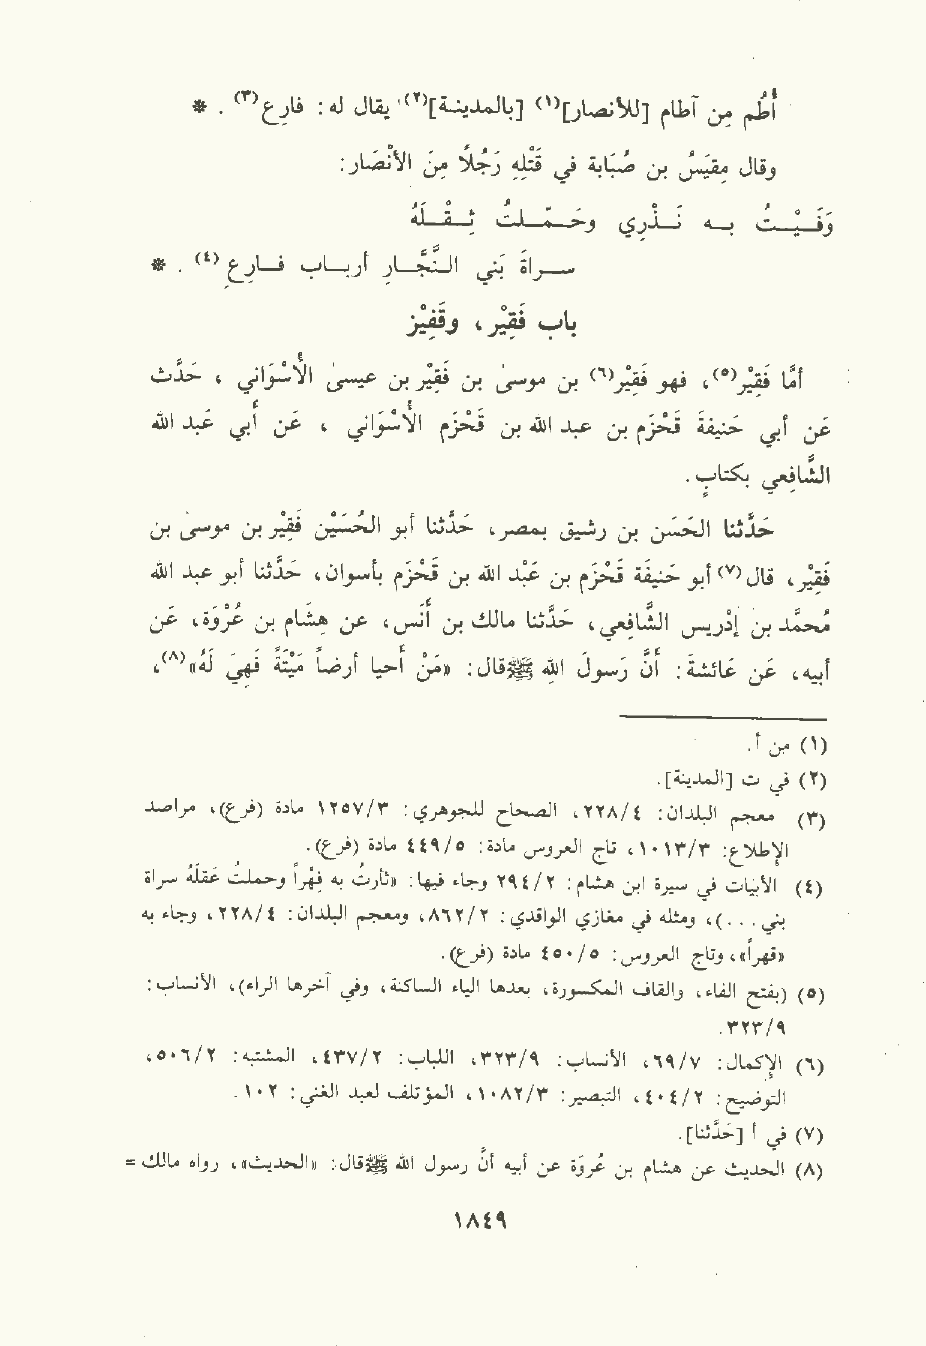 أُطُم مِن آطام [للأنصار]⁽¹⁾ [بالمدينة]⁽²⁾، يقال له: فارِع⁽³⁾. *
وقال مِقْيَسُ بن صُبَابة في قَتْلِهِ رَجُلاً مِنَ الأنْصَار:
وَفَيْتُ به نَذْري وحَمَّلتُ ثِقْلَهُ
سراةَ بَني النَّجَّارِ أرباب فارعِ⁽⁴⁾. *
باب فَقِيْر، وقَفِيْز
أمَّا فَقِيْر⁽⁵⁾، فهو فَقِيْر⁽⁶⁾ بن موسىٰ بن فَقِيْر بن عيسىٰ الأُسْوَاني، حَدَّث
عَن أبي حَنيفةَ قَحْزم بن عبد الله بن قَحْزَم الأُسْوَاني، عَن أبي عَبد الله
الشَّافِعي بكتابٍ.
حَدَّثنا الحَسَن بن رشيق بمصر، حَدَّثنا أبو الحُسَيْن فَقِيْر بن موسىٰ بن
فَقِيْر، قال⁽⁷⁾ أبو حَنيفَة قَحْزَم بن عَبْد الله بن قَحْزم بأسوان، حَدَّثنا أبو عبد الله
مُحمَّد بن إدْريس الشَّافعي، حَدَّثنا مالك بن أنَس، عن هشَام بن عُرْوَة، عَن
أبيه، عَن عائشة: أنَّ رَسولَ الله ﷺ قال: «مَنْ أحيا أرضاً مَيْتَةً فَهِيَ لَهُ»⁽⁸⁾،
(١) من أ.
(٢) في ت [المدينة].
(٣) معجم البلدان: ٢٢٨/٤، الصحاح للجوهري: ١٢٥٧/٣ مادة (فرع)، مراصد
الإطلاع: ١٠١٣/٣، تاج العروس مادة: ٤٤٩/٥ مادة (فرع).
(٤) الأبيات في سيرة ابن هشام: ٢٩٤/٢ وجاء فيها: «ثأرتُ به فِهْراً وحملتُ عَقلَهُ سراة
بني...)، ومثله في مغازي الواقدي: ٨٦٢/٢، ومعجم البلدان: ٢٢٨/٤، وجاء به
«قهراً»، وتاج العروس: ٤٥٠/٥ مادة (فرع).
(٥) (بفتح الفاء، والقاف المكسورة، بعدها الياء الساكنة، وفي آخرها الراء)، الأنساب:
٣٢٣/٩.
(٦) الإكمال: ٦٩/٧، الأنساب: ٣٢٣/٩، اللباب: ٤٣٧/٢، المشتبه: ٥٠٦/٢،
التوضيح: ٤٠٤/٢، التبصير: ١٠٨٢/٣، المؤتلف لعبد الغني: ١٠٢.
(٧) في أ [حَدَّثنا].
(٨) الحديث عن هشام بن عُرْوَة عن أبيه أنَّ رسول الله ﷺ قال: «الحديث»، رواه مالك =
١٨٤٩